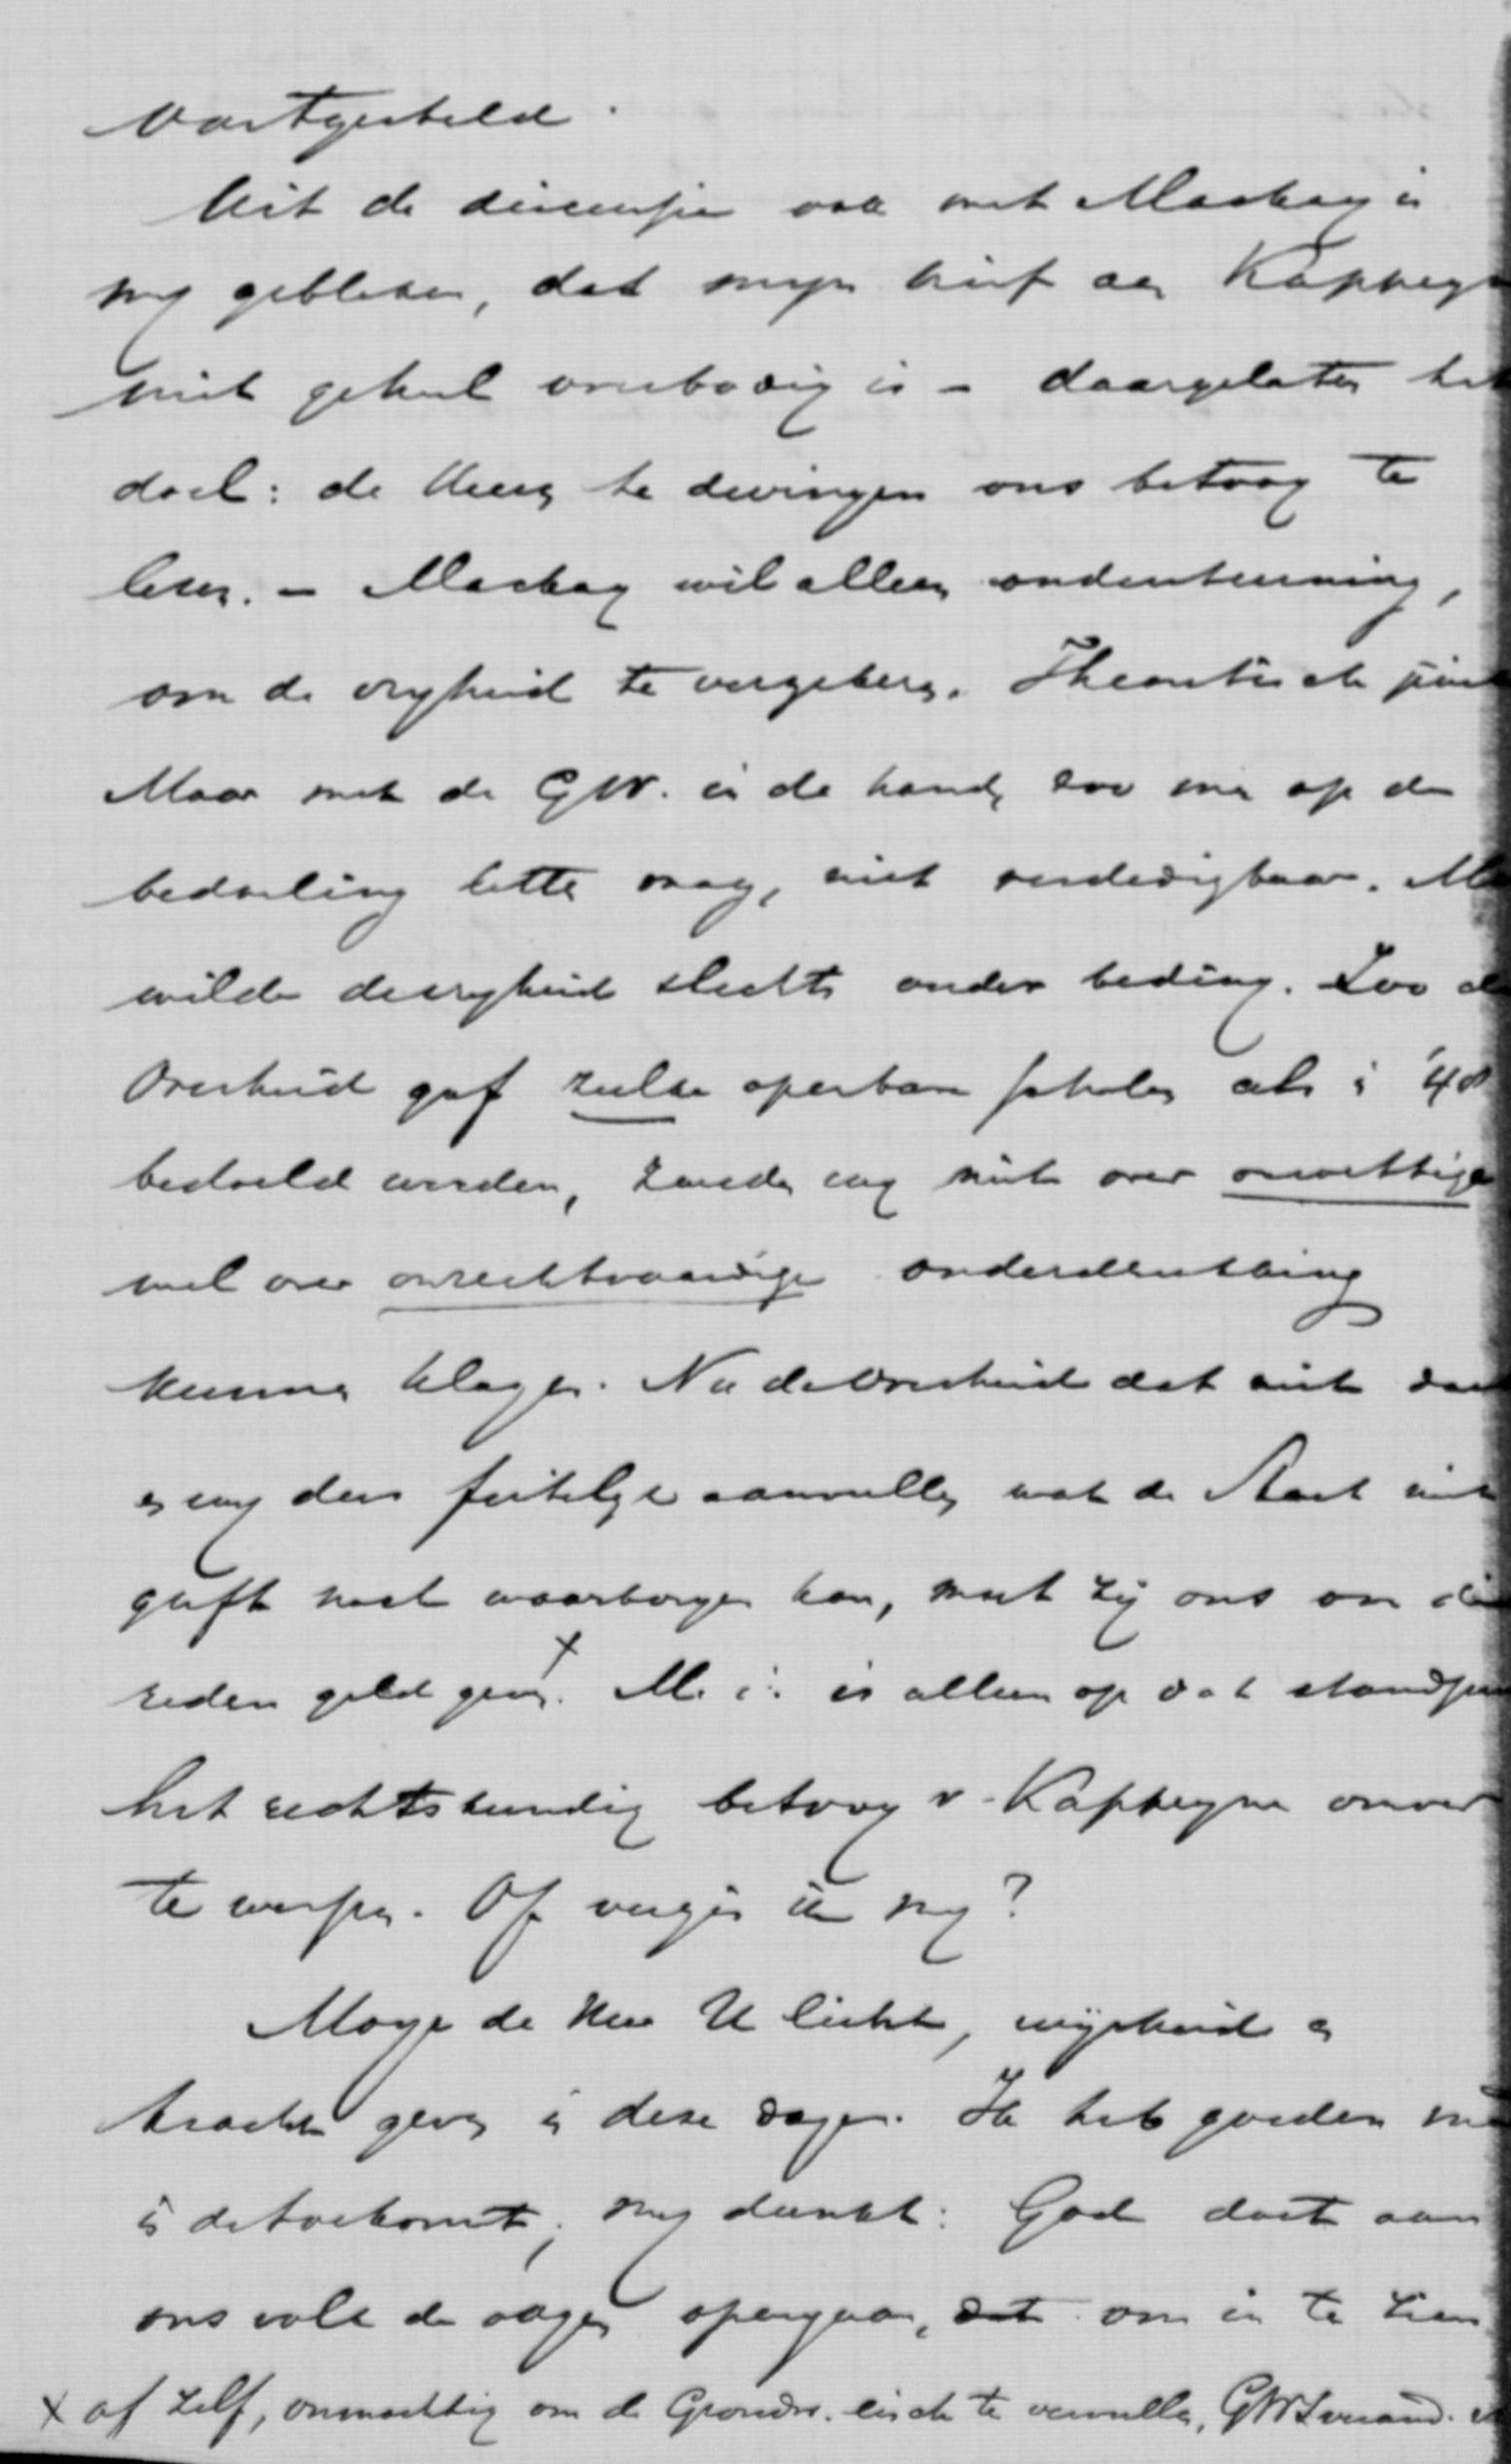 vastgesteld.
Uit de discussie ook met Mackay is
mij gebleken, dat mijn brief aan Kappeyne
niet geheel overbodig is – daargelaten het
doel: de Heeren te dwingen ons betoog te
lezen. – Mackay wil alleen ondersteuning,
om de vrijheid te vergoeden. Theoretisch juist
Maar met de GW. in de hand, zoo men op de
bedoeling letten mag, niet verdedigbaar. Men
wilde de vrijheid slechts onder beding. Zoo de
Overheid gaf zulke openbare scholen als in '48
bedoeld werden, zouden wij niet over onwettige
wel over onrechtvaardige onderdrukking
kunnen klagen. Nu de Overheid dat niet doet
en wij dus feitelijk aanvullen wat de Staat niet
geeft noch waarborgen kan, moet zij ons om die
reden geld geven. x M. i. is alleen op dat standpunt
het rechtskundig betoog v. Kappeyne omver
te werpen. Of vergis ik mij?
Moge de Heer U licht, wijsheid en
kracht geven in deze dagen. Ik heb goeden moed
in de toekomst; mij dunkt: God doet aan
ons volk de oogen opengaan, dat om in te zien
x of zelf, onmachtig om de Grondw. eisch te vervullen, GWSverand.